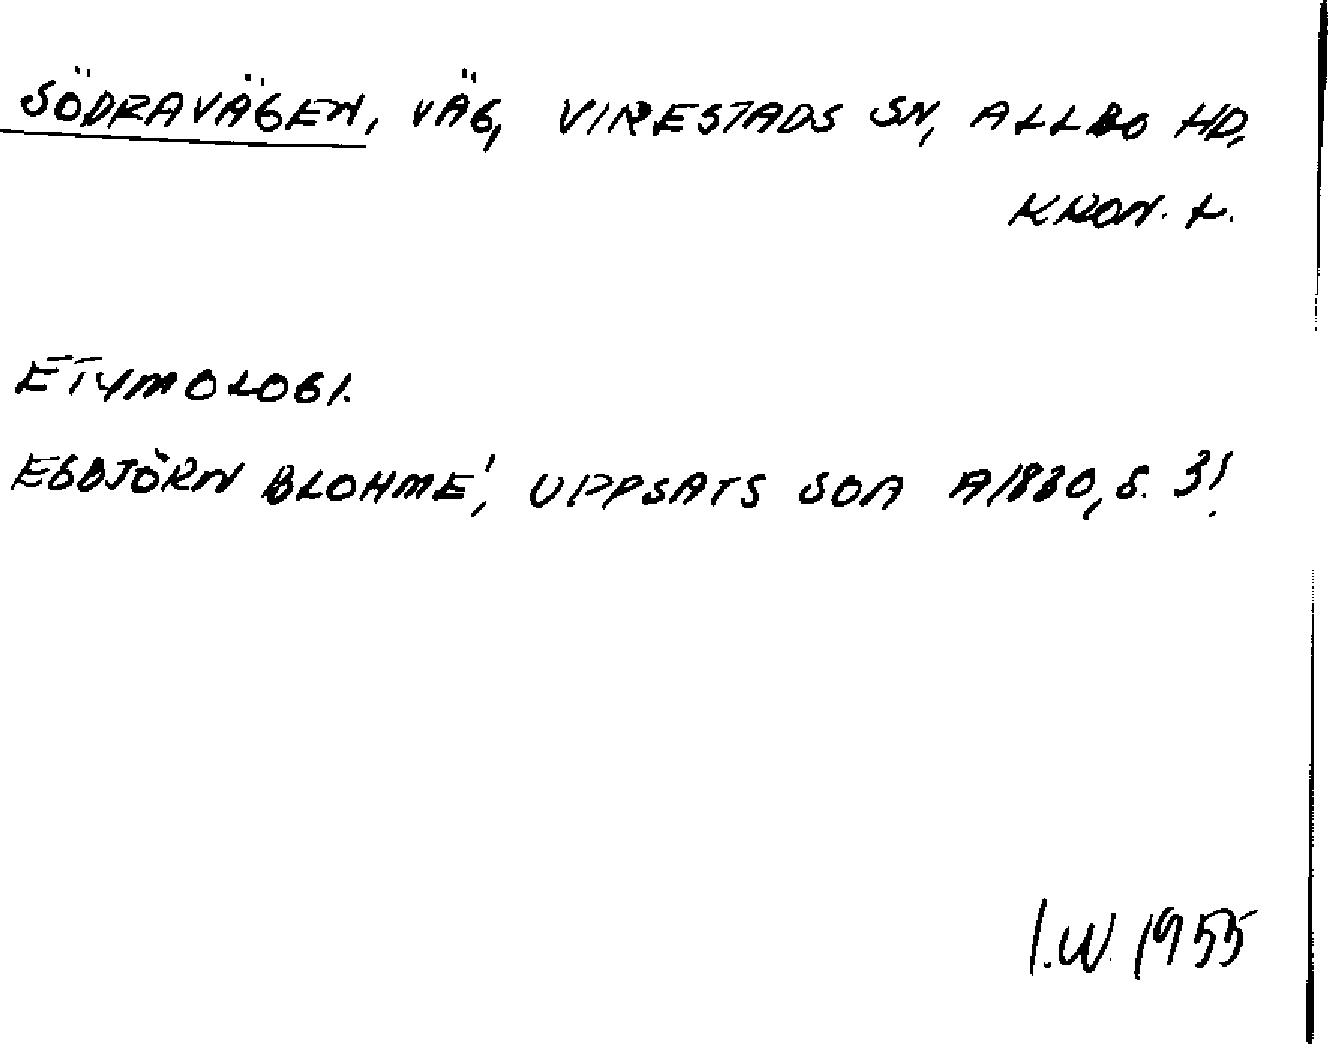 SÖDRAVÄGEN, VÄG, VIRESTADS SN, ALLBO HD,
KRON. L.
ETYMOLOGI.
EGBJÖRN BLOHMÉ, UPPSATS SOA A/830, S. 3!
I.W. 1955